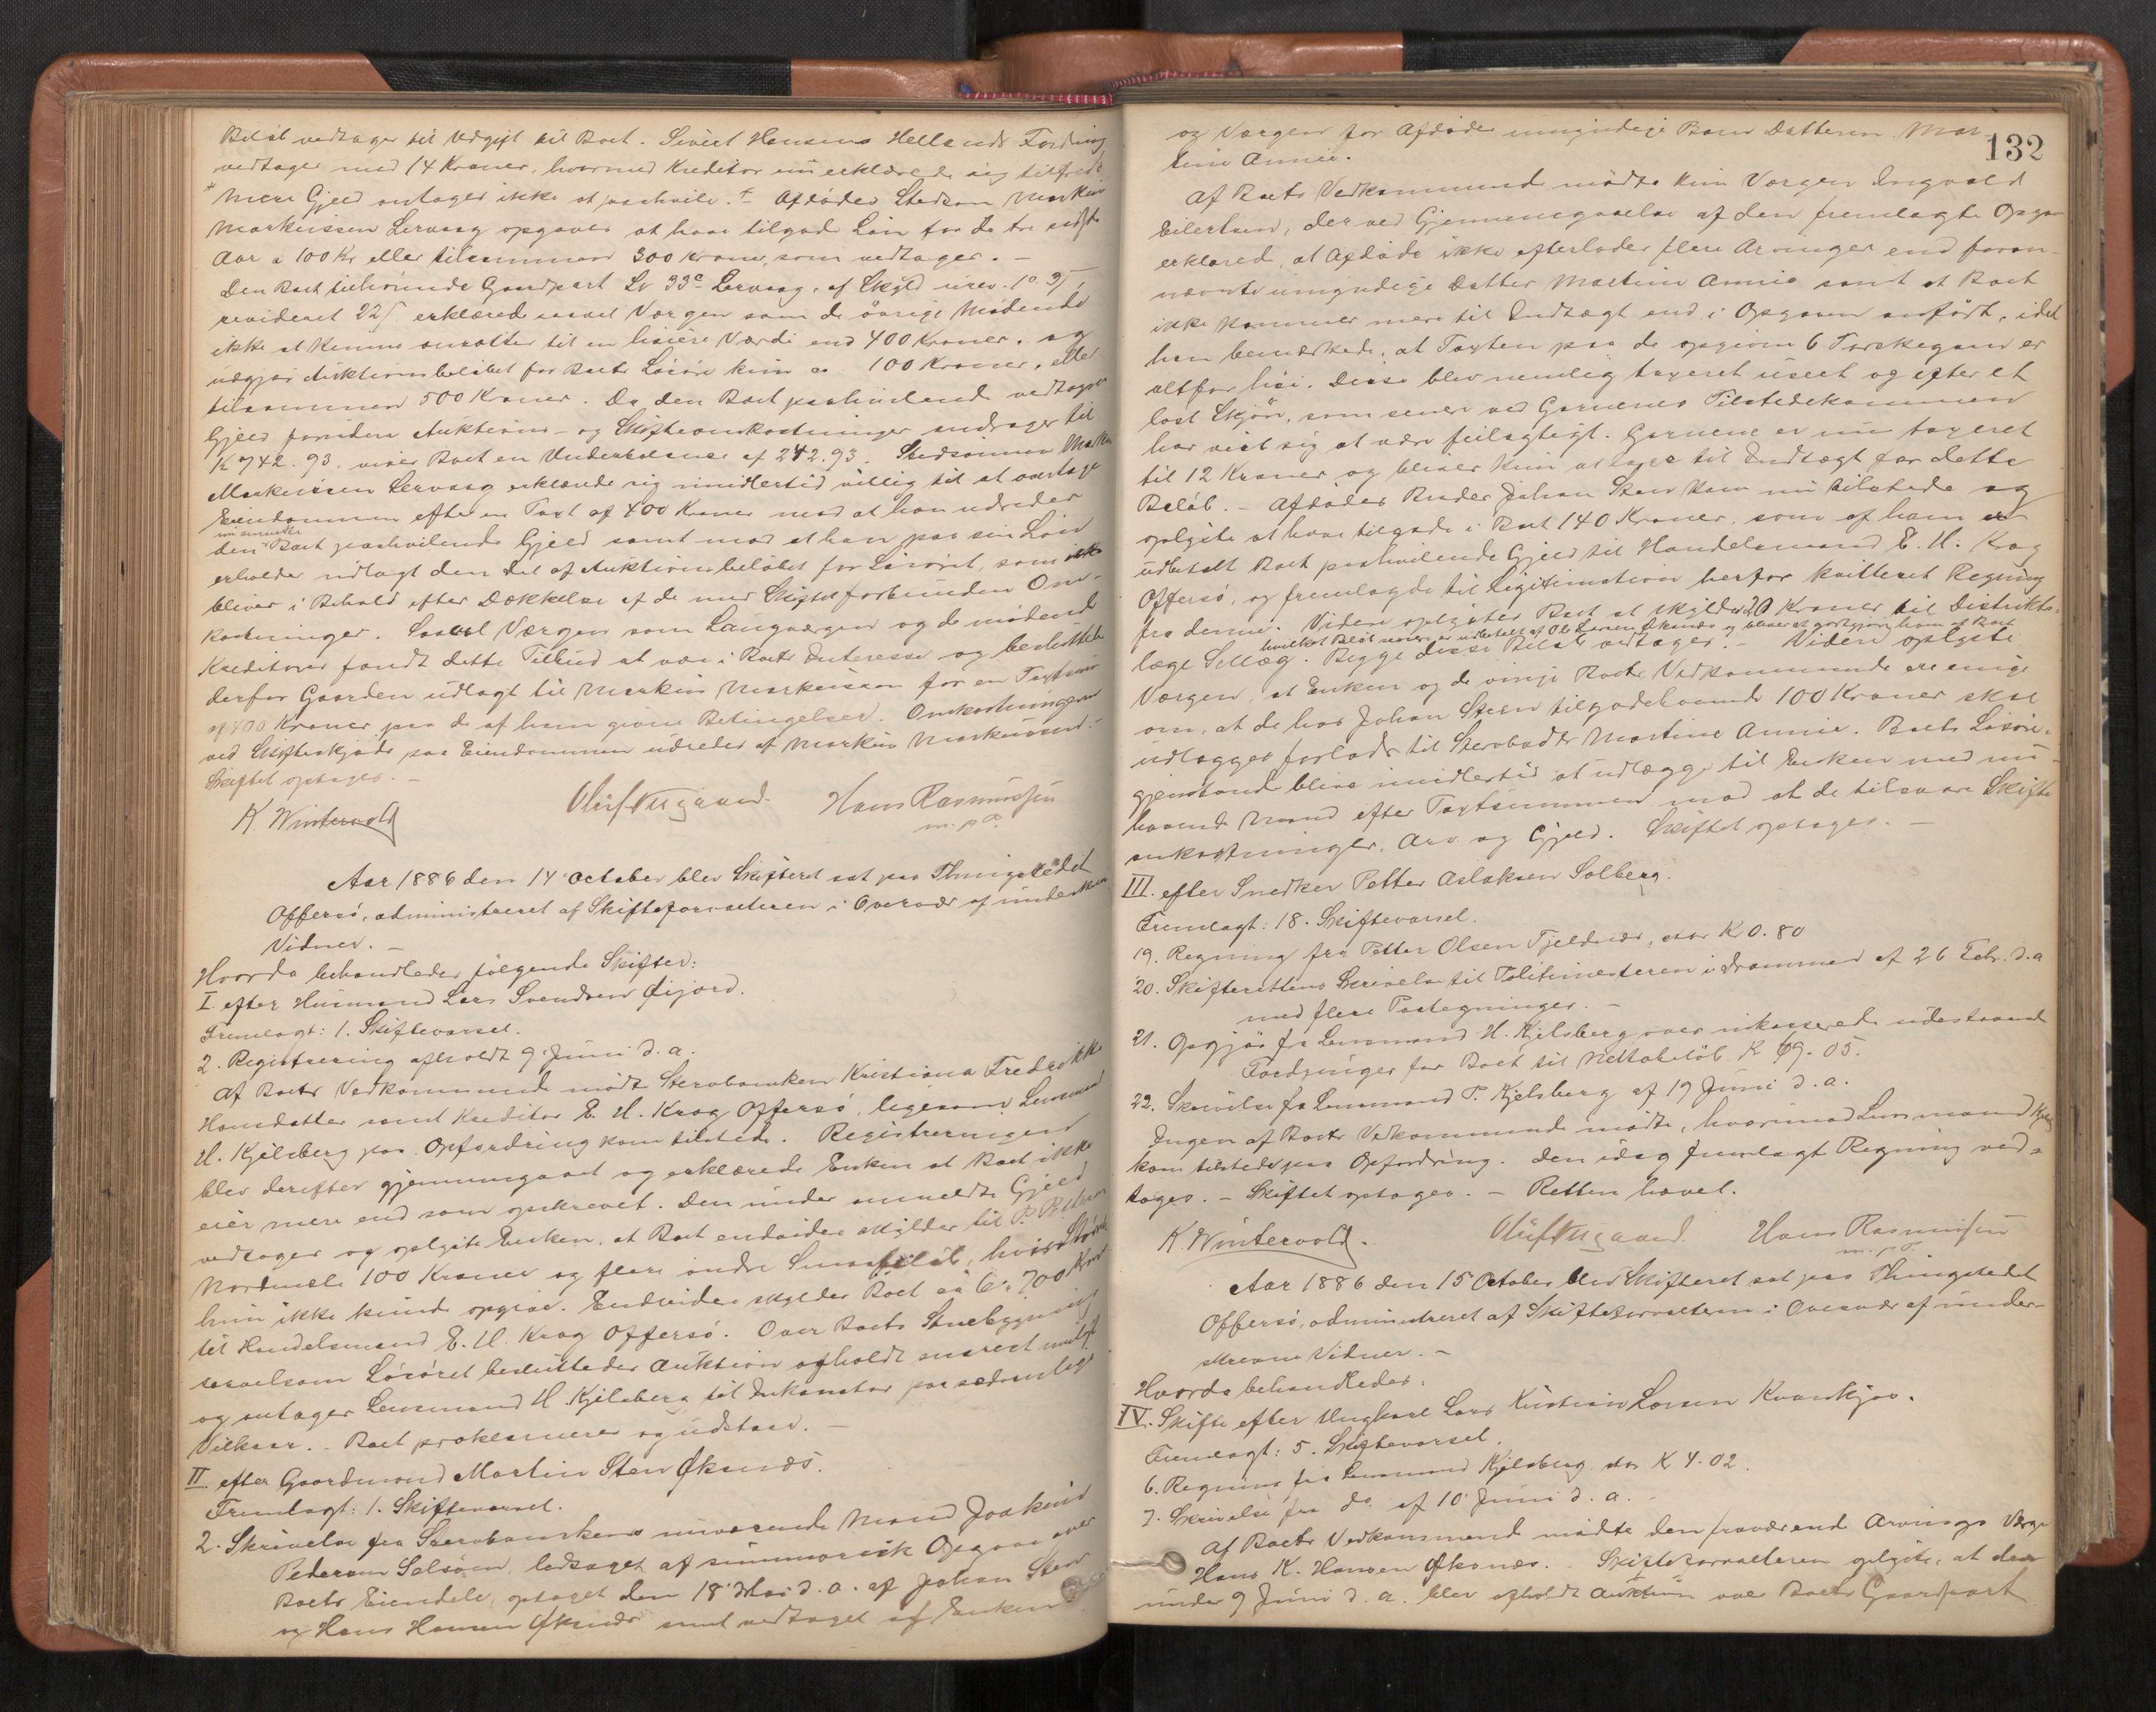 Beløb vedtages til Udgift til Boet. Sivert Hansens Hellands Fordring
vedtages med 14 Kroner, hvormed Kreditor nu erklærede sig tilfreds
Mere Gjeld antages ikke at paahvile. Afdødes Stedsøn Markus
Markussen Lervaag opgaves at have tilgode Løn for de tre sidste
Aar a 100 Kr eller tilsammen 300 Kroner, som vedtages. –
Den Boet tilhørende Gaardpart Lb 33c Lervaag, af Skyld urev. 1o. 3/,
revideret 22/ erklærede saavel Værgen som de øvrige Mødende
ikke at kunne ansættes til en høiere Værdi end 400 Kroner, og
udgjør Auktionsbeløbet for Boets Løsøre kun ca. 100 Kroner, eller
tilsammen 500 Kroner. Da den Boet paahvilende vedtagne
Gjeld foruden Auktions- og Skifteomkostninger andrager til
K 742.93. viser Boet en Underbalance af 242.93. Stedsønnen Markus
Markussen Lervaag erklærede sig imidlertid villig til at overtage
Eiendommen efter en Taxt af 400 Kroner mod at han udreder
den nu anmeldte Boet paahvilende Gjeld samt mod at han paa sin Løn
erholder udlagt den Del af Auktionsbeløbet for Løsøret, som
bliver i Behold efter Dækkelse af de med Skiftet forbundne Om-
kostninger. Saavel Værgen som Laugværgen og de mødende
Kreditorer fandt dette Tilbud at være i Boets Interesse og besluttede
derfor Gaarden udlagt til Markus Markussen for en Taxtsum
af 400 Kroner paa de af ham givne Betingelser. Omkostningerne
ved Skifteskjøde paa Eiendommen udredes af Markus Markussen. –
Skiftet optages. –
K. Wintervold Oluf Aagaard. Hans Rasmussen
m. p. P.
Aar 1886 den 14 October blev Skifteret sat paa Thingstedet
Offersø, administreret af Skifteforvalteren i Overvær af underskrevne
Vidner. –
Hvorda behandledes følgende Skifter:
I. efter Husmand Lars Svendsen Øijord.
Fremlagt: 1. Skiftevarsel.
2. Registrering afholdt 9 Juni d. a.
Af Boets Vedkommende mødte Stervboenken Kristiana Fredrikke
Hansdatter samt Kreditor E. H. Krog Offersø, ligesom Lensmand
H. Kjelsberg paa Opfordring kom tilstede. Registreringen
blev derefter gjennemgaaet og erklærede Enken at Boet ikke
eier mere end som opskrevet. Den under anmeldte Gjeld
vedtages og oplyste Enken, at Boet endvidere skylder til P.
100 Kroner og flere andre Smaabeløb, hvis Størrelse
hun ikke kunde opgive. Endvidere skylder Boet ca 6 a 700 Kroner
til Handelsmand E. H. Krog Offersø. Over Boets Stuebygning
saavelsom Løsøret besluttedes Auktion afholdt snarest muligt
og antages Lensmand H. Kjelsberg til Inkassator paa sædvanlige
Vilkaar. – Boet proklameres og udstaar. –
II efter Gaardmand Martin Sten Øksnæs.
Fremlagt: 1. Skiftevarsel.
2. Skrivelse fra Stervboenkens nuværende Mand Joakim
Pedersen Salsøen, ledsaget af summarisk Opgave over
Boets Eiendele, optaget den 18 Mai d. a. af Johan Sten
og Hans Hansen Øksnæs samt vedtaget af Enken
132
og Værgen for Afdødes umyndige Barn Datteren Mar-
tine Annie.
Af Boets Vedkommende mødte kun Værgen Ingvald
Eilertsen, der ved Gjennemgaaelse af den fremlagte Opgave
erklærede, at Afdøde ikke efterlader flere Arvinger end foran-
nævnte umyndige Datter Martine Annie samt at Boet
ikke kommer mere til Indtægt end i Opgaven anført, idet
han bemærkede, at Taxten paa de opgivne 6 Torskegarn er
altfor høi. Disse blev nemlig taxeret useet og efter et
løst Skjøn, som senere ved Garnenes Tilstedekommen
har vist sig at være feilagtigt. Garnene er nu taxeret
til 12 Kroner og bliver kun at tage til Indtægt for dette
Beløb. – Afdødes Broder Johan Sten kom nu tilstede og
oplyste at have tilgode i Boet 140 Kroner, som af ham er
udbetalt Boet paahvilende Gjeld til Handelsmand E. H. Krog
Offersø, og fremlagde til Legitimation herfor kvitteret Regning
fra denne. Videre oplystes Boet at skylde 20 Kroner til Distrikts-
læge Selläg. hvilket Beløb senere er udbetalt af Ole Larsen Øksnæs og bliver at godtgjøre ham af Boet Begge disse Beløb vedtages. – Videre oplyste
Værgen, at Enken og de øvrige Boets Vedkommende ere enige
om, at de hos Johan Steen tilgodehavende 100 Kroner skal
udlægges forlods til Stervbodtr Martine Annie. Boets Løsøre-
gjenstande blive imidlertid at udlægge til Enken med nu-
havende Mand efter Taxtsummen mod at de tilsvare Skifte
omkostninger, Arv og Gjeld. Skiftet optages. –
III. efter Snedker Petter Aslaksen Solberg.
Fremlagt: 18. Skiftevarsel.
19. Regning fra Petter Olsen Fjeldnæs, stor K 0.80
20. Skifterettens Skrivelse til Politimesteren i Drammen af 26 Febr. d. a
med flere Paategninger. –
21. Opgjør fra Lensmand H. Kjelsberg over inkasserede udestaaende
Fordringer for Boet til Nettobeløb K 69.05.
22. Skrivelse fra Lensmand P. Kjelsberg af 19 Juni d. a.
Ingen af Boets Vedkommende mødte, hvorimod Lensmand Kjelsb.
kom tilstede paa Opfordring. Den idag fremlagt Regning ved-
tages. – Skiftet optages. – Retten hævet.
K Wintervold. Oluf Aagaard. Hans Rasmussen
m. p. P.
Aar 1886 den 15 October blev Skifteret sat paa Thingstedet
Offersø, administreret af Skifteforvalteren i Overvær af under-
skrevne Vidner. –
Hvorda behandledes:
IV. Skifte efter Ungkarl Lars Kristian Larsen Kvankjøs.
Fremlagt: 5. Skiftevarsel.
6. Regning fra Lensmand Kjelsberg stor K 4.02.
7. Skrivelse fra do af 10 Juni d. a.
Af Boets Vedkommende mødte den fraværende Arvings Værge
Hans K. Hansen Øksnæs. – Skifteforvalteren oplyste, at der
under 9 Juni d. a. blev afholdt Auktion over Boets Gaardpart